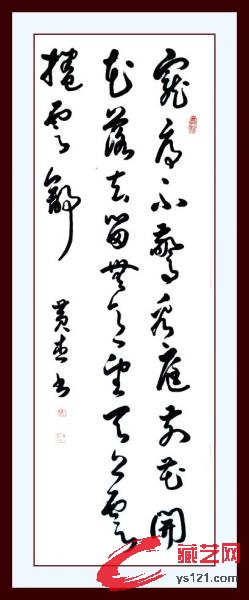 寵辱不驚看庭前花開
花落去留無意望天上雲
捲雲舒
黄 书
藏艺网
ys121.com